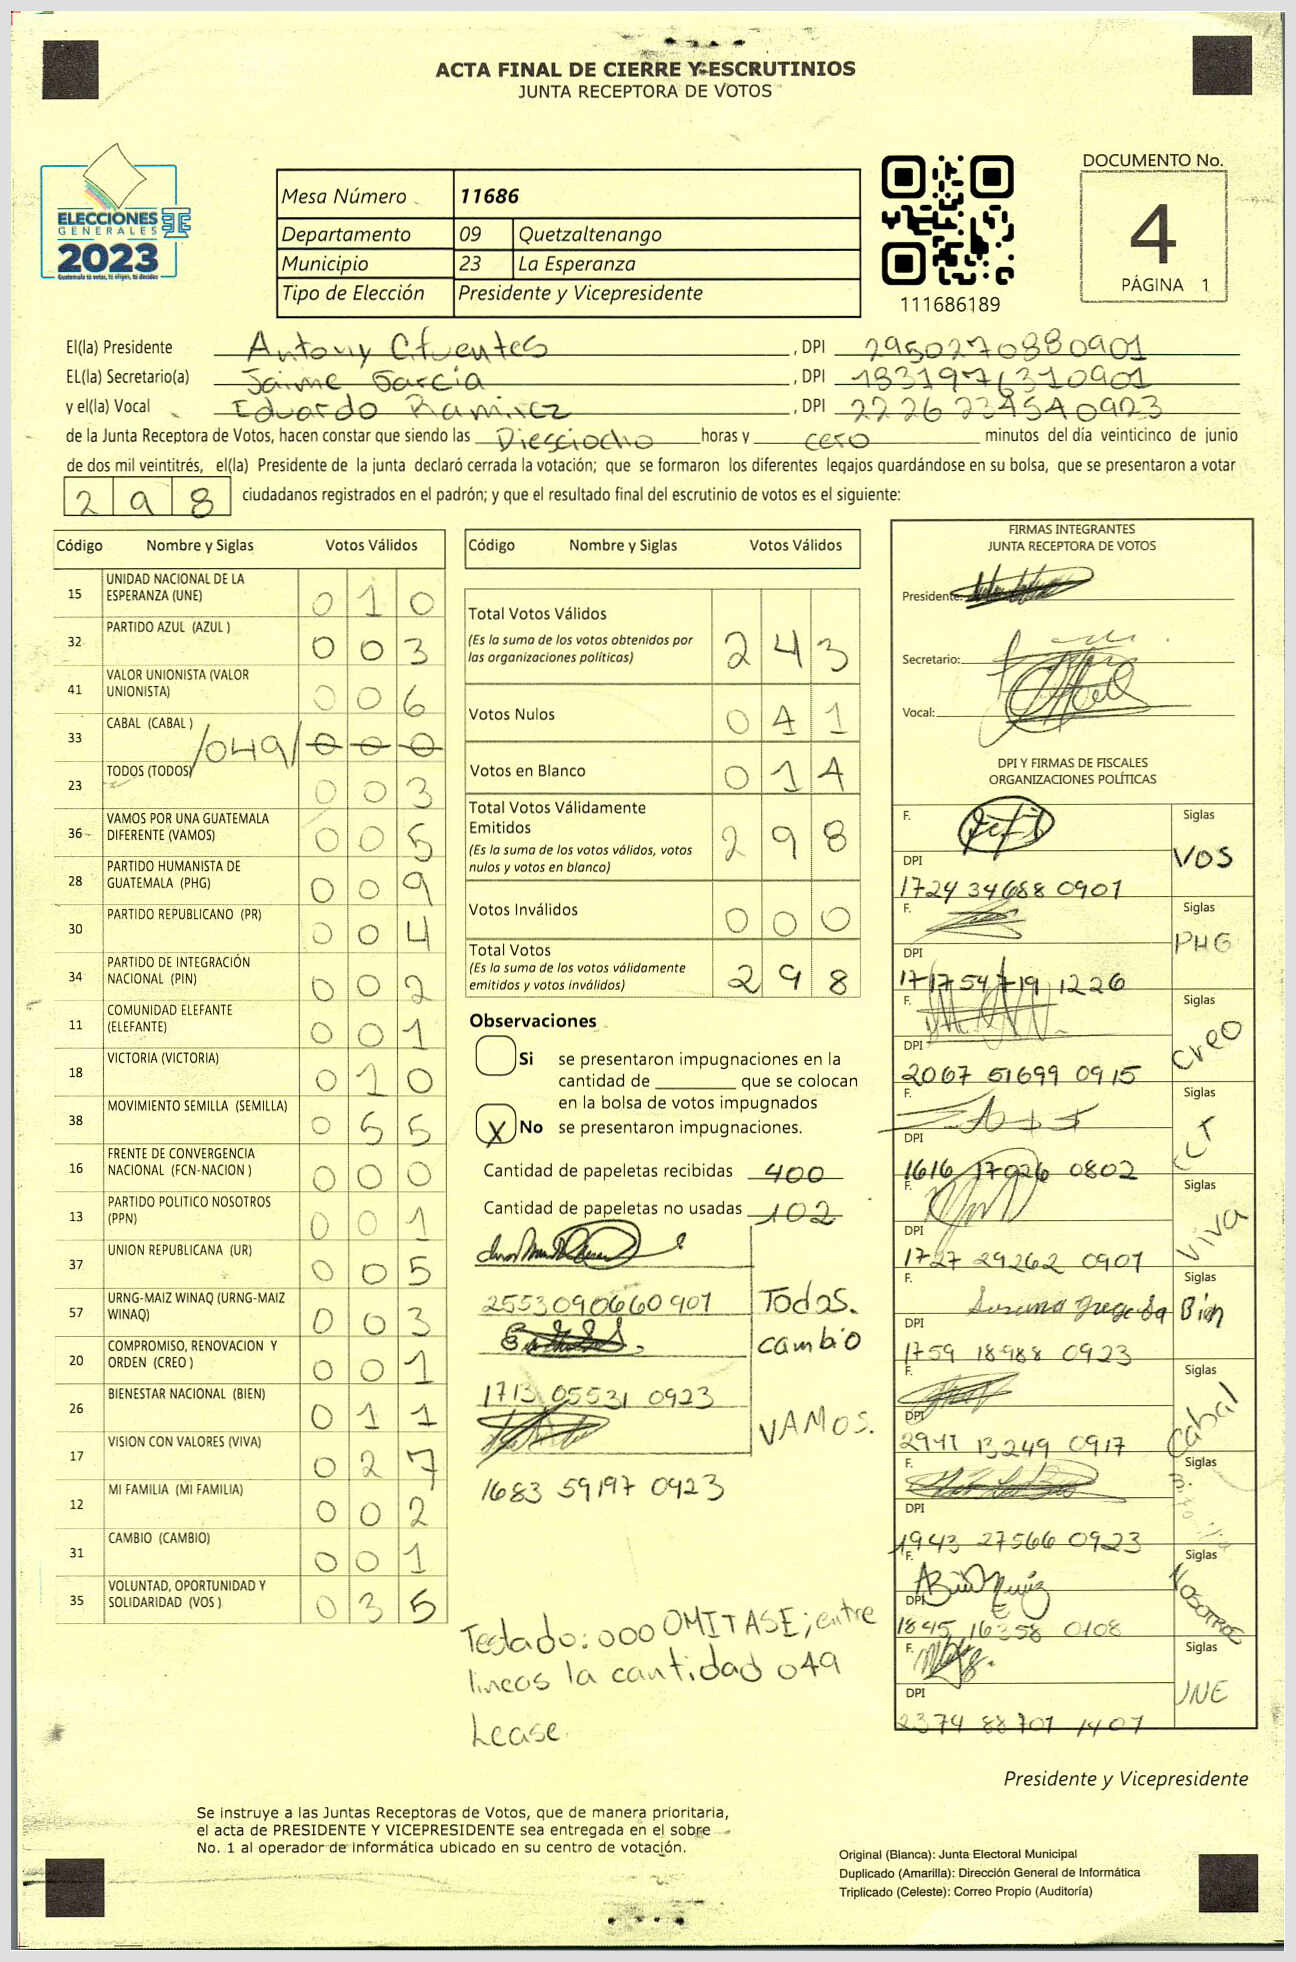 ACTA FINAL DE CIERRE Y ESCRUTINIOS
JUNTA RECEPTORA DE VOTOS
ELECCIONES
GENERALES
2023
Guatemala tú votas, tú eliges, tú decides
Mesa Número 11686
Departamento 09 Quetzaltenango
Municipio 23 La Esperanza
Tipo de Elección Presidente y Vicepresidente
111686189
DOCUMENTO No.
4
PÁGINA 1
El(la) Presidente Antony Cifuentes , DPI 2950270880901
EL(la) Secretario(a) Jaime García , DPI 1831976310901
y el(la) Vocal Eduardo Ramirez , DPI 2226234540923
de la Junta Receptora de Votos, hacen constar que siendo las Diesciocho horas y cero minutos del día veinticinco de junio
de dos mil veintitrés, el(la) Presidente de la junta declaró cerrada la votación; que se formaron los diferentes legajos quardándose en su bolsa, que se presentaron a votar
298 ciudadanos registrados en el padrón; y que el resultado final del escrutinio de votos es el siguiente:
Código Nombre y Siglas Votos Válidos
15 UNIDAD NACIONAL DE LA ESPERANZA (UNE) 010
32 PARTIDO AZUL (AZUL ) 003
41 VALOR UNIONISTA (VALOR UNIONISTA) 006
33 CABAL (CABAL ) /049/ 000
23 TODOS (TODOS) 003
36 VAMOS POR UNA GUATEMALA DIFERENTE (VAMOS) 005
28 PARTIDO HUMANISTA DE GUATEMALA (PHG) 009
30 PARTIDO REPUBLICANO (PR) 004
34 PARTIDO DE INTEGRACIÓN NACIONAL (PIN) 002
11 COMUNIDAD ELEFANTE (ELEFANTE) 001
18 VICTORIA (VICTORIA) 010
38 MOVIMIENTO SEMILLA (SEMILLA) 055
16 FRENTE DE CONVERGENCIA NACIONAL (FCN-NACION ) 000
13 PARTIDO POLITICO NOSOTROS (PPN) 001
37 UNION REPUBLICANA (UR) 005
57 URNG-MAIZ WINAQ (URNG-MAIZ WINAQ) 003
20 COMPROMISO, RENOVACION Y ORDEN (CREO ) 001
26 BIENESTAR NACIONAL (BIEN) 011
17 VISION CON VALORES (VIVA) 027
12 MI FAMILIA (MI FAMILIA) 002
31 CAMBIO (CAMBIO) 001
35 VOLUNTAD, OPORTUNIDAD Y SOLIDARIDAD (VOS ) 035
Código Nombre y Siglas Votos Válidos
Total Votos Válidos 243
(Es la suma de los votos obtenidos por
las organizaciones políticas)
Votos Nulos 041
Votos en Blanco 014
Total Votos Válidamente
Emitidos 298
(Es la suma de los votos válidos, votos
nulos y votos en blanco)
Votos Inválidos 000
Total Votos 298
(Es la suma de los votos válidamente
emitidos y votos inválidos)
Observaciones
Si se presentaron impugnaciones en la
cantidad de ________ que se colocan
en la bolsa de votos impugnados
X No se presentaron impugnaciones.
Cantidad de papeletas recibidas 400
Cantidad de papeletas no usadas 102
2553090660901 Todos.
cambio
1713 05531 0923
VAMOS.
1683 59197 0923
Testado: 000 OMITASE; entre
lineas la cantidad 049
Lease.
FIRMAS INTEGRANTES
JUNTA RECEPTORA DE VOTOS
Presidente:
Secretario:
Vocal:
DPI Y FIRMAS DE FISCALES
ORGANIZACIONES POLÍTICAS
F. Siglas
VOS
DPI
1724 34688 0901
F. Siglas
PHG
DPI
1717 54719 1226
F. Siglas
Creo
DPI
2067 51699 0915
F. Siglas
DPI
1616 17026 0802
F. Siglas
viva
DPI
1727 29262 0901
F. Siglas
Bien
DPI
1759 18988 0923
F.
Cabal
DPI
2941 13249 0917
F. Siglas
DPI
1943 27566 0923
F. Siglas
NOSOTROS
DPI
1845 16358 0108
F. Siglas
UNE
DPI
2374 88701 1401
Presidente y Vicepresidente
Se instruye a las Juntas Receptoras de Votos, que de manera prioritaria,
el acta de PRESIDENTE Y VICEPRESIDENTE sea entregada en el sobre
No. 1 al operador de informática ubicado en su centro de votación.
Original (Blanca): Junta Electoral Municipal
Duplicado (Amarilla): Dirección General de Informática
Triplicado (Celeste): Correo Propio (Auditoría)